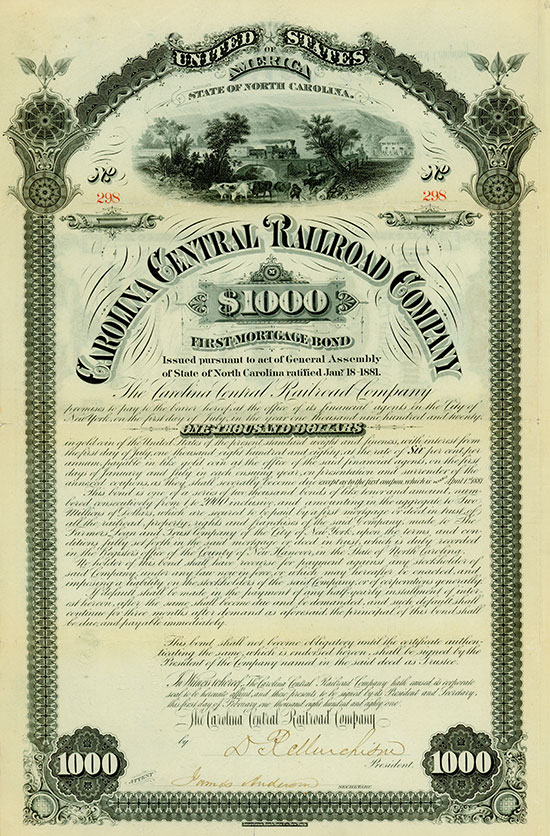 UNITED STATES
OF
AMERICA
STATE OF NORTH CAROLINA.
No No
298 298
CAROLINA CENTRAL RAILROAD COMPANY
M
$1000
FIRST MORTGAGE BOND
Issued pursuant to act of General Assembly
of State of North Carolina ratified Jany. 18-1881.
The Carolina Central Railroad Company
promises to pay to the bearer hereof, at the office of its financial agents in the City of
New York, on the first day of July, in the year one thousand nine hundred and twenty,
ONE THOUSAND DOLLARS
in gold coin of the United States of the present standard of weight and fineness, with interest from
the first day of July, one thousand eight hundred and eighty, at the rate of Six per cent per
annum, payable in like gold coin at the office of the said financial agents, on the first
days of January and July in each and every year, on presentation and surrender of the
annexed coupons, as they shall severally become due except as to the first coupon, which is April 1st 1881
This bond is one of a series of two thousand bonds of like tenor and amount, num-
bered consecutively from 1 to 2000 inclusive, and amounting in the aggregate to Two
Millions of Dollars, which is secured to be paid by a first mortgage or deed in trust, of
all the railroad, property, rights and franchises of the said Company, made to The
Farmers' Loan and Trust Company of the City of New York, upon the terms and con-
ditions fully set forth in the said mortgage or deed in trust, which is duly recorded
in the Registers office of the County of New Hanover, in the State of North Carolina.
No holder of this bond shall have recourse for payment against any stockholder of
said Company, under any law now in force, or which may hereafter be enacted, any
imposing a liability on the stockholders of the said Company, or of corporations generally.
If default shall be made in the payment of any half-yearly installment of inter-
est hereon, after the same shall become due and be demanded, and such default shall
continue for three months after demand as aforesaid, the principal of this bond shall
be due and payable immediately.
This bond, shall not become obligatory until the certificate authen-
ticating the same, which is endorsed hereon, shall be signed by the
President of the Company named in the said deed as Trustee.
In Witness whereof, The Carolina Central Railroad Company hath caused its corporate
seal to be hereunto affixed, and these presents to be signed by its President and Secretary,
this first day of February, one thousand eight hundred and eighty one.
The Carolina Central Railroad Company
by D R Murchison
President.
ATTEST James Anderson SECRETARY.
1000 1000